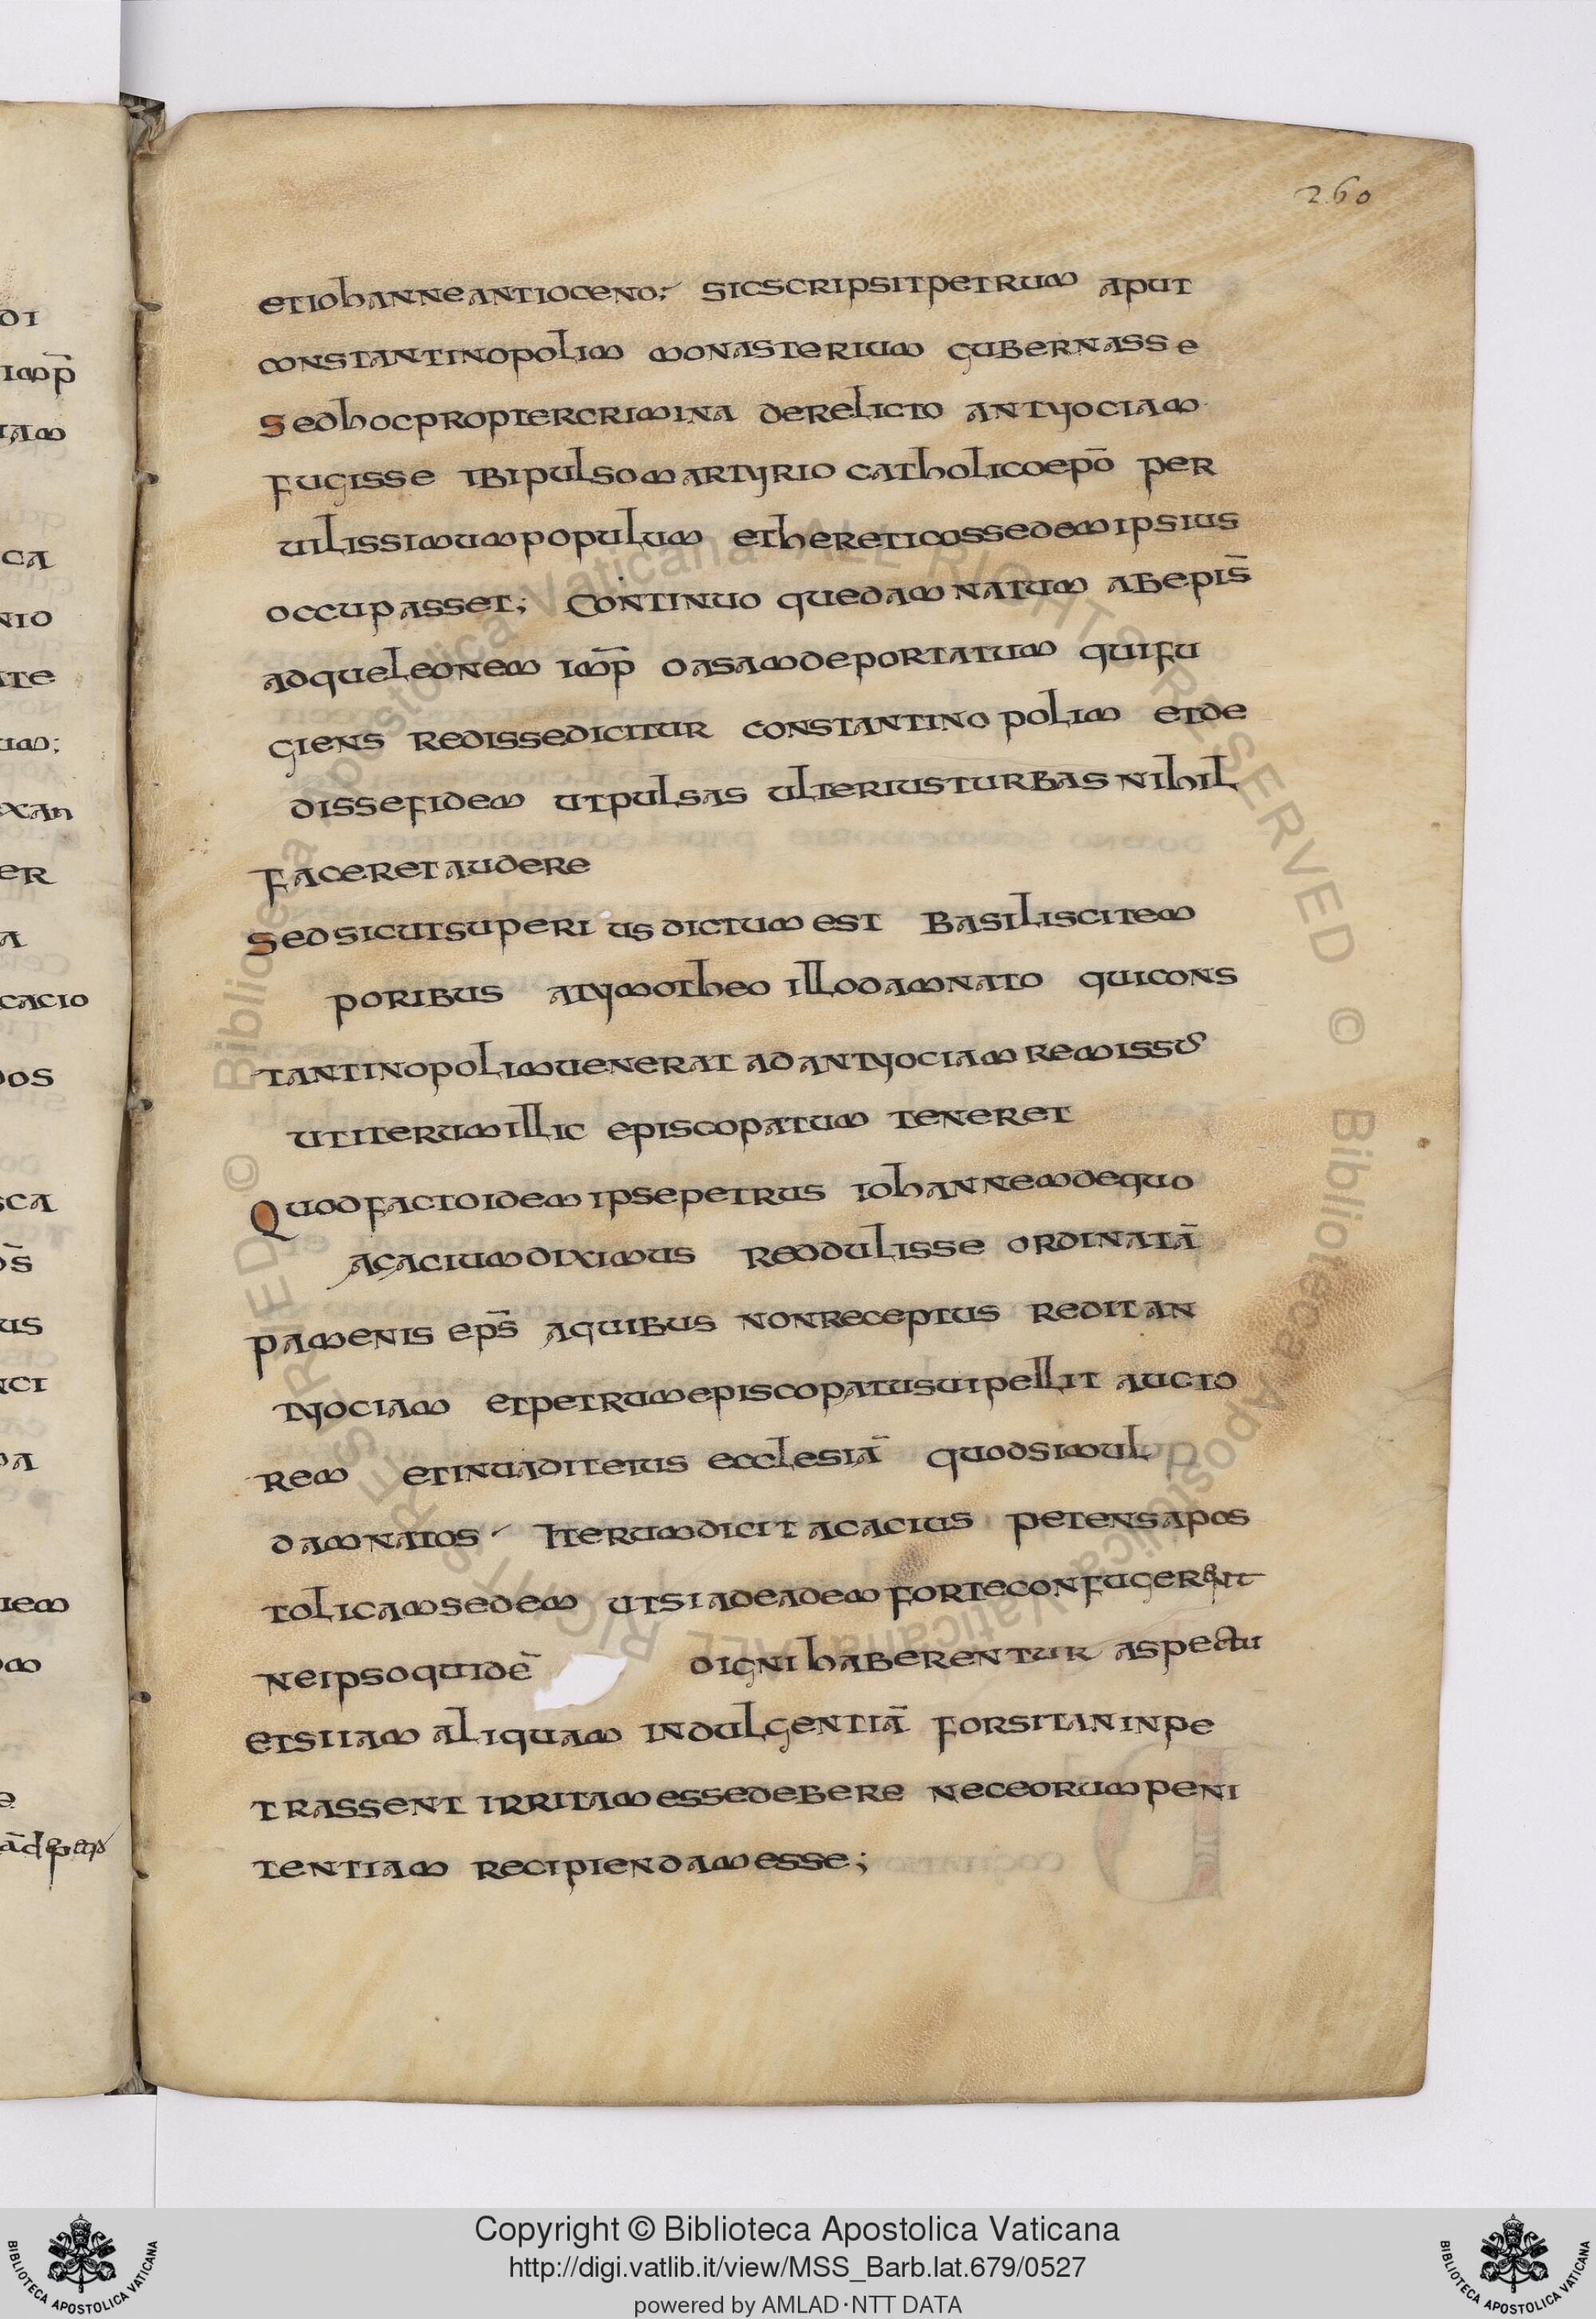 260
et iohanne antioceno; sic scripsit petrum aput
constantinopolim monasterium gubernasse
Sed hoc propter crimina derelicto antyociam
fugisse ibi pulso martyrio catholico epō per
uilissimum populum et hereticos sedem ipsius
occupasset; Continuo que damnatum ab epis̄
adque leonem imp̄ oasam deportatum qui fu
giens redisse dicitur constantinopolim et de
disse fidem ut pulsas ulterius turbas nihil
faceret audere
Sed sicut superius dictum est basilisci tem
poribus a tymotheo illo damnato qui cons
tantinopolim uenerat ad antyociam remissus
ut iterum illic episcopatum teneret
Quod facto idem ipse petrus iohannem de quo
acacium diximus redulisse ordinatā
pamenis eps̄ a quibus non receptus redit an
tyociam et petrum episcopatus ui pellit aucto
rem et inuadit eius ecclesiā quod simul
damnatos Iterum dicit acacius petens apos
tolicam sedem ut si ad eadem forte confugerant
ne ipso quidē digni haberentur aspectu
et si iam aliquam indulgentiā forsitan inpe
trassent irritam esse debere nec eorum peni
tentiam recipiendam esse;
di
imp̄
iam
ca
nio
ite
um;
exan
er
a
cacio
dos
sca
s̄
us
nci
pa
iem
om
e
Copyright © Biblioteca Apostolica Vaticana
http://digi.vatlib.it/view/MSS_Barb.lat.679/0527
powered by AMLAD·NTT DATA
BIBLIOTECA APOSTOLICA VATICANA
BIBLIOTECA APOSTOLICA VATICANA
© Biblioteca Apostolica Vaticana ALL RIGHTS RESERVED © Biblioteca Apostolica Vaticana ALL RIGHTS RESERVED